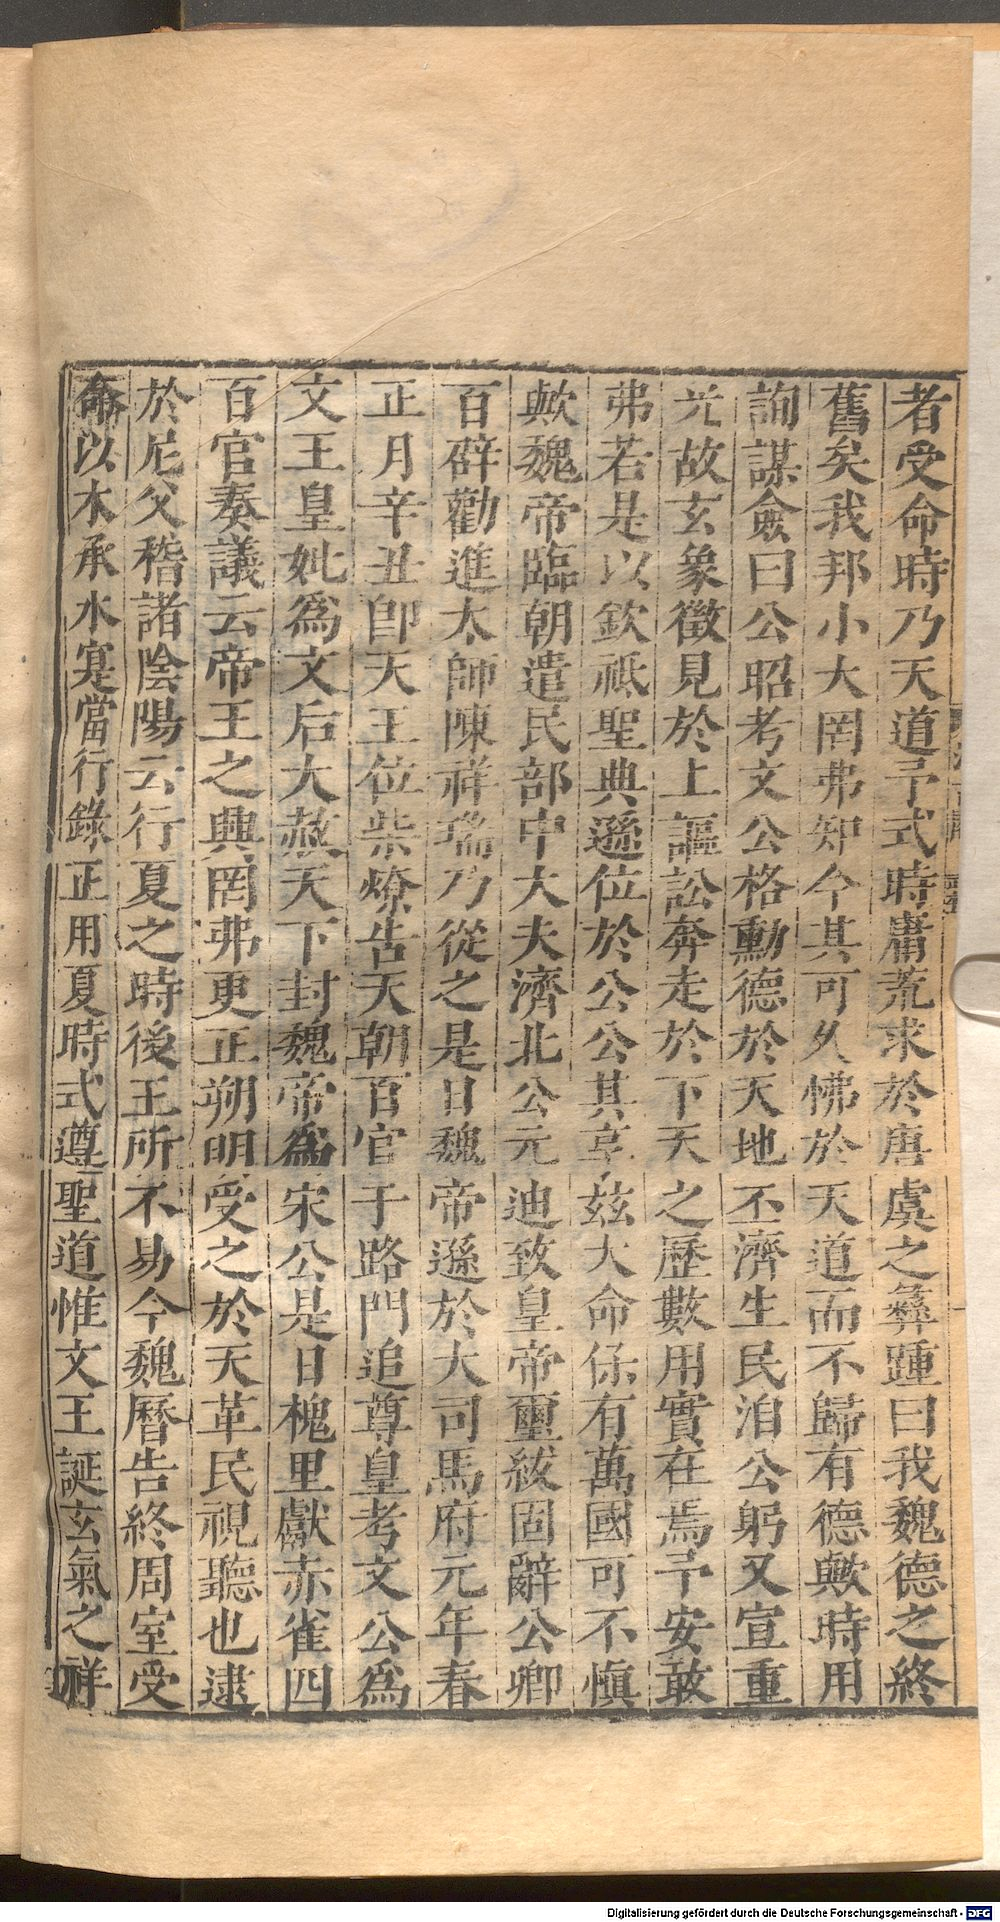 者受命時乃天道予式時庸荒求於唐虞之彝踵曰我魏德之終
舊矣我邦小大罔弗知今其可久怫於天道而不歸有德歟時用
詢謀僉曰公昭考文公格勳德於天地丕濟生民洎公躬又宣重
光故玄象徵見於上謳訟奔走於下天之歷數用實在焉予安敢
弗若是以欽祗聖典遜位於公公其享兹大命保有萬國可不慎
歟魏帝臨朝遣民部中大夫濟北公元迪致皇帝璽紱固辭公卿
百辟勸進太師陳祥瑞乃從之是日魏帝遜於大司馬府元年春
正月辛丑卽天王位柴燎告天朝百官于路門追尊皇考文公爲
文王皇妣爲文后大赦天下封魏帝爲宋公是日槐里獻赤雀四
百官奏議云帝王之興罔弗更正朔明受之於天革民視聽也逮
於尼父稽諸陰陽云行夏之時後王所不易今魏曆告終周室受
命以木承水寔當行錄正用夏時式遵聖道惟文王誕玄氣之祥
Digitalisierung gefördert durch die Deutsche Forschungsgemeinschaft - DFG